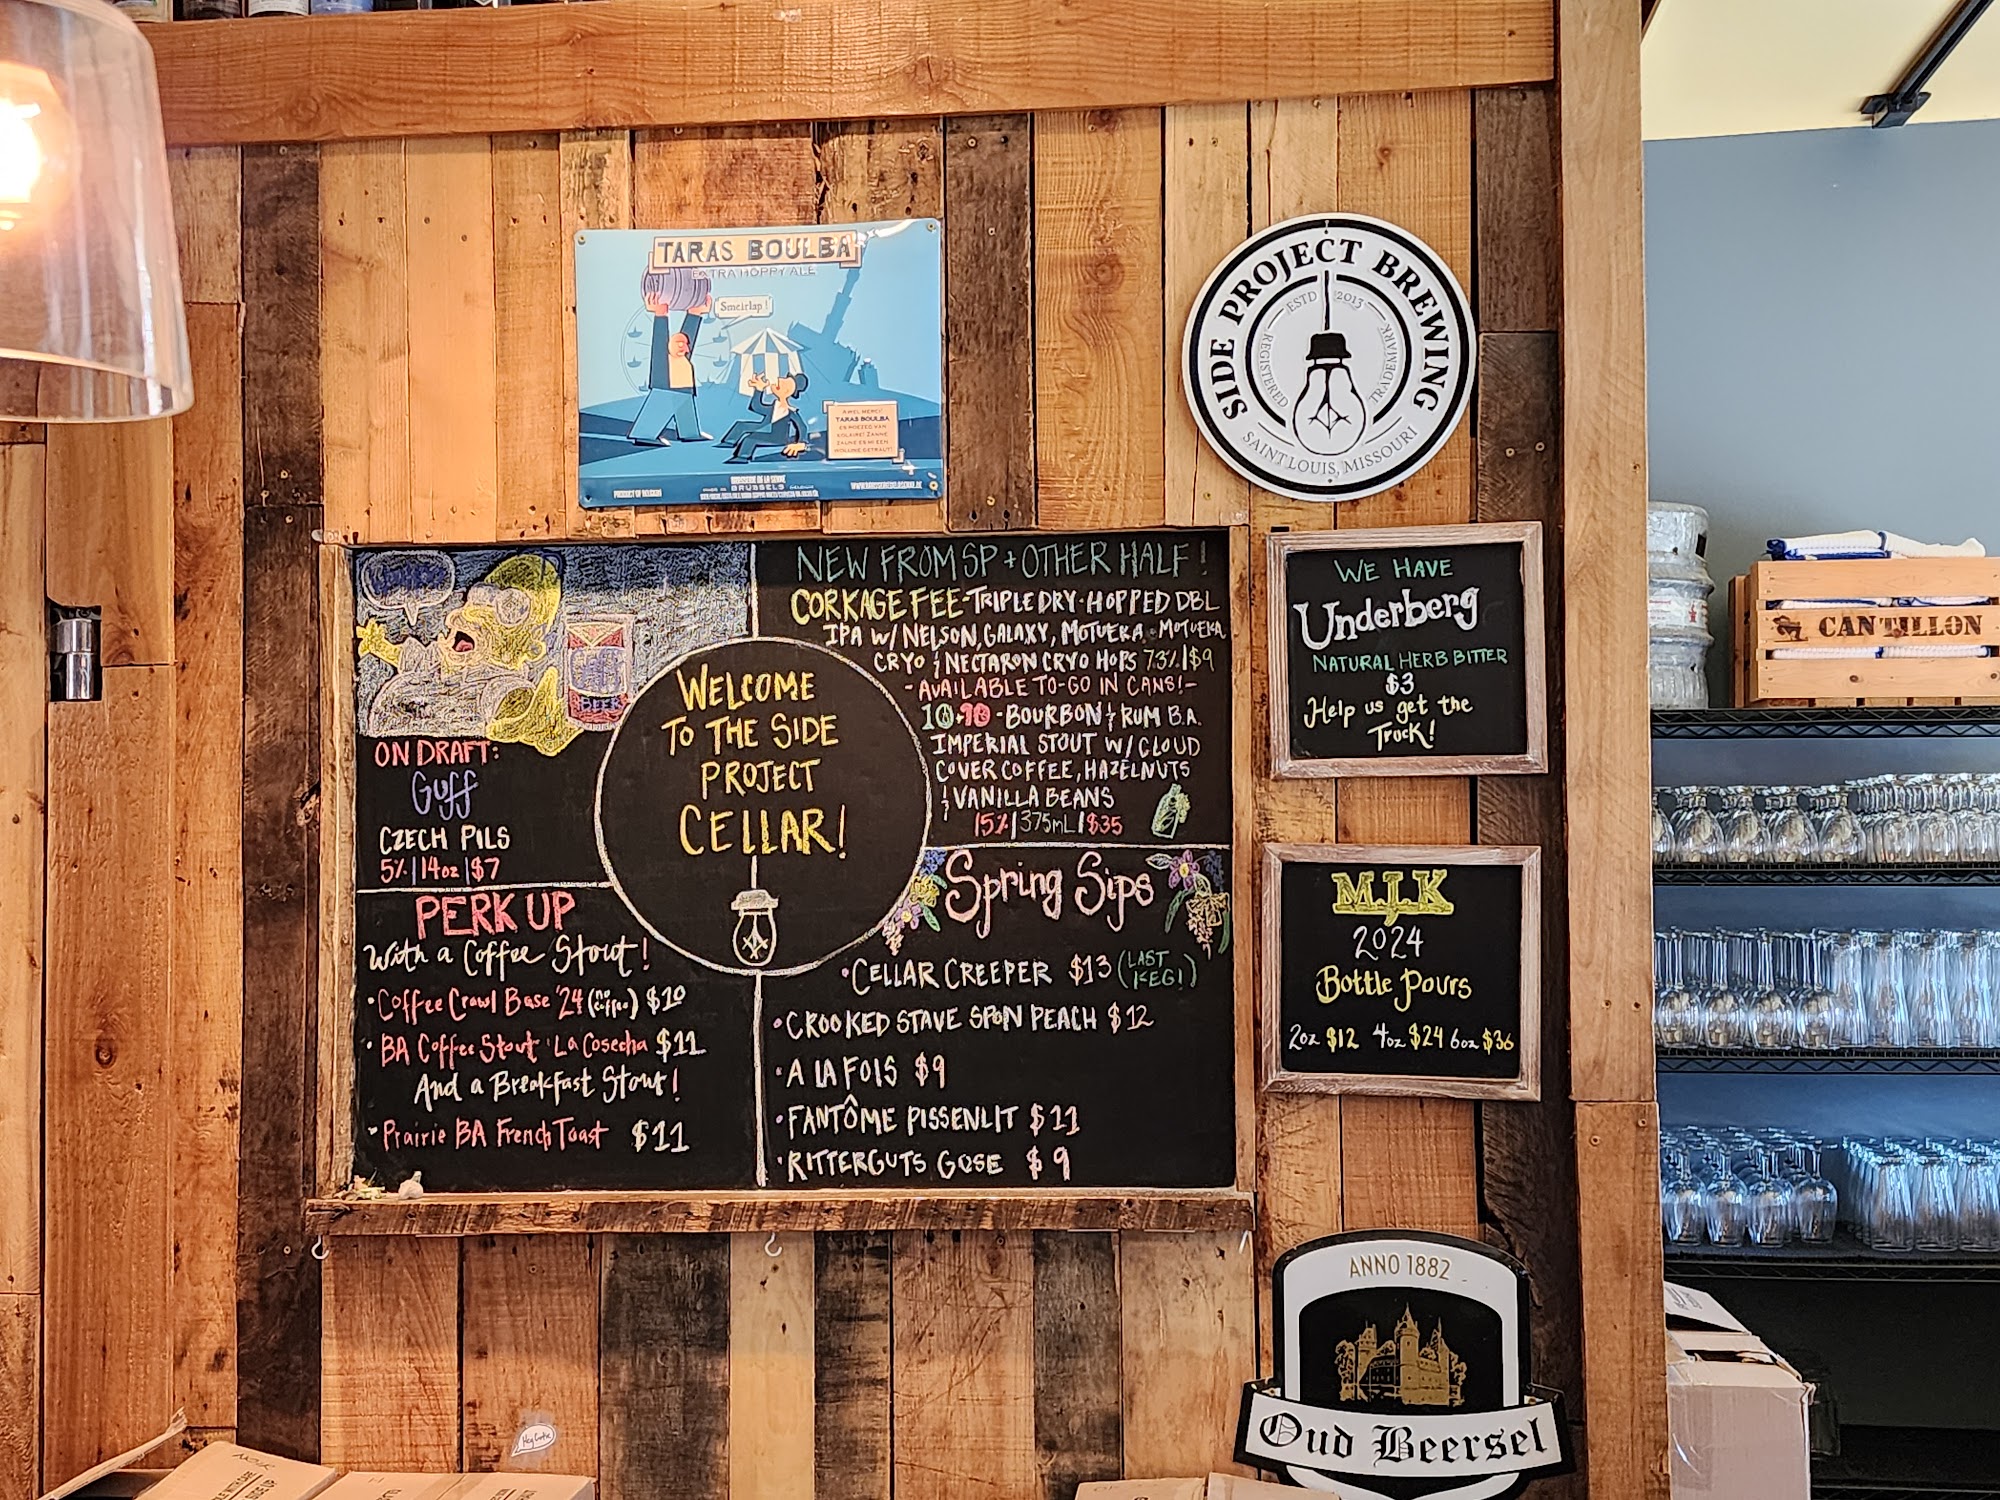 TARAS BOULBA
EXTRA HOPPY ALE
Smeirlap !
AWEL MERCI!
TARAS BOULBA
PRODUCT OF BELGIUM
BRASSERIE DE LA SENNE
BRUSSELS
SIDE PROJECT BREWING
ESTD 2013
REGISTERED TRADEMARK
SAINT LOUIS, MISSOURI
BEER
ON DRAFT:
GUFF
CZECH PILS
5% | 14oz | $7
PERK UP
With a Coffee Stout!
• Coffee Crawl Base '24 (no coffee) $10
• BA Coffee Stout: La Cosecha $11
And a Breakfast Stout!
• Prairie BA French Toast $11
WELCOME
TO THE SIDE
PROJECT
CELLAR!
NEW FROM SP + OTHER HALF!
CORKAGE FEE - TRIPLE DRY-HOPPED DBL
IPA W/ NELSON, GALAXY, MOTUEKA, MOTUEKA
CRYO & NECTARON CRYO HOPS 7.3% | $9
- AVAILABLE TO-GO IN CANS! -
10+10 - BOURBON & RUM B.A.
IMPERIAL STOUT W/ CLOUD
COVER COFFEE, HAZELNUTS
& VANILLA BEANS
15% | 375mL | $35
Spring Sips
• CELLAR CREEPER $13 (LAST KEG!)
• CROOKED STAVE SPON PEACH $12
• A LA FOIS $9
• FANTÔME PISSENLIT $11
• RITTERGUTS GOSE $9
WE HAVE
Underberg
NATURAL HERB BITTER
$3
Help us get the
Truck!
M.J.K
2024
Bottle Pours
2oz $12 4oz $24 6oz $36
CANTILLON
ANNO 1882
Oud Beersel